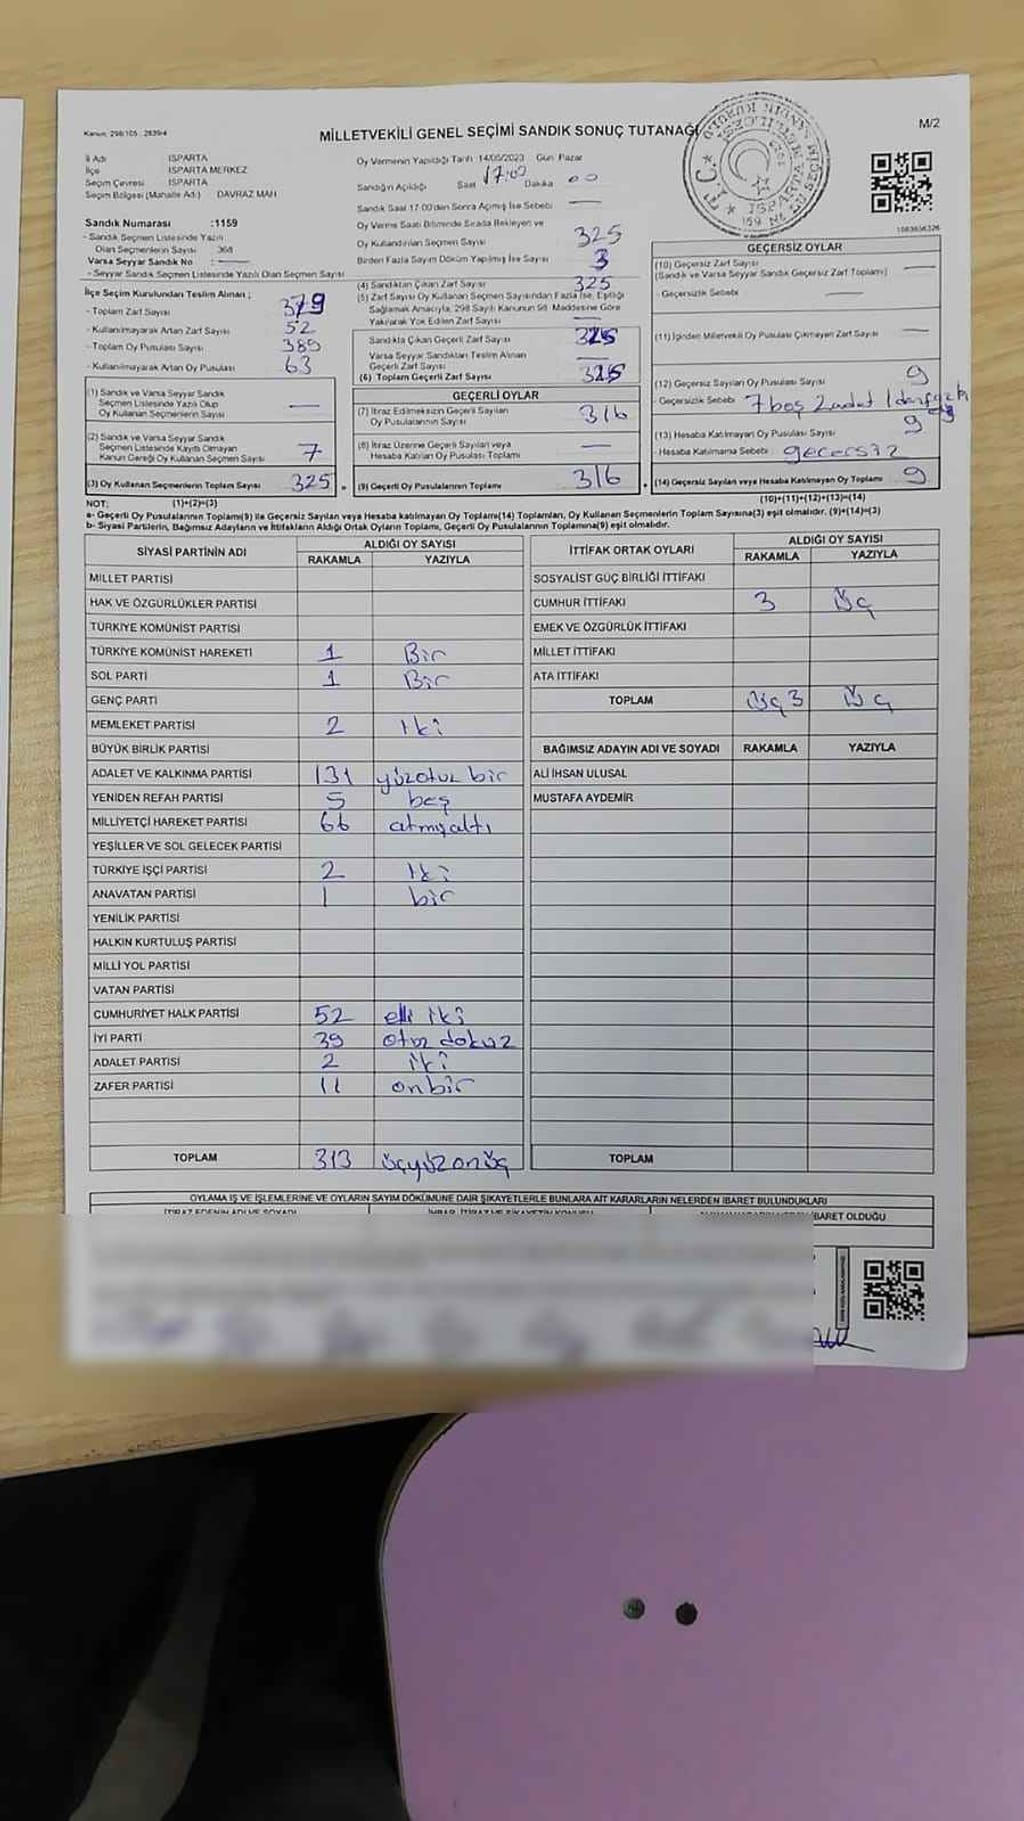 Kanun: 298/105 : 2839/4
MİLLETVEKİLİ GENEL SEÇİMİ SANDIK SONUÇ TUTANAĞI
M/2
İl Adı ISPARTA
İlçe ISPARTA MERKEZ
Seçim Çevresi ISPARTA
Seçim Bölgesi (Mahalle Ad.) DAVRAZ MAH
Sandık Numarası :1159
- Sandık Seçmen Listesinde Yazılı
Olan Seçmenlerin Sayısı 368
Varsa Seyyar Sandık No : —
- Seyyar Sandık Seçmen Listesinde Yazılı Olan Seçmen Sayısı
İlçe Seçim Kurulundan Teslim Alınan ;
- Toplam Zarf Sayısı 379
- Kullanılmayarak Artan Zarf Sayısı 52
- Toplam Oy Pusulası Sayısı 385
- Kullanılmayarak Artan Oy Pusulası 63
(1) Sandık ve Varsa Seyyar Sandık
Seçmen Listesinde Yazılı Olup
Oy Kullanan Seçmenlerin Sayısı —
(2) Sandık ve Varsa Seyyar Sandık
Seçmen Listesinde Kayıtlı Olmayan
Kanun Gereği Oy Kullanan Seçmen Sayısı 7
(3) Oy Kullanan Seçmenlerin Toplam Sayısı 325
Oy Vermenin Yapıldığı Tarih :14/05/2023 Gün: Pazar
Sandığın Açıldığı Saat 17:00 Dakika 00
Sandık Saat 17:00'den Sonra Açılmış İse Sebebi —
Oy Verme Saati Bitiminde Sırada Bekleyen ve
Oy Kullandırılan Seçmen Sayısı 325
Birden Fazla Sayım Döküm Yapılmış İse Sayısı 3
(4) Sandıktan Çıkan Zarf Sayısı 325
(5) Zarf Sayısı Oy Kullanan Seçmen Sayısından Fazla İse, Eşitliği
Sağlamak Amacıyla, 298 Sayılı Kanunun 98. Maddesine Göre
Yakılarak Yok Edilen Zarf Sayısı —
Sandıkta Çıkan Geçerli Zarf Sayısı 325
Varsa Seyyar Sandıktan Teslim Alınan
Geçerli Zarf Sayısı —
(6) Toplam Geçerli Zarf Sayısı 325
GEÇERLİ OYLAR
(7) İtiraz Edilmeksizin Geçerli Sayılan
Oy Pusulasının Sayısı 316
(8) İtiraz Üzerine Geçerli Sayılan veya
Hesaba Katılan Oy Pusulası Toplamı —
(9) Geçerli Oy Pusulalarının Toplamı 316
1083656326
GEÇERSİZ OYLAR
(10) Geçersiz Zarf Sayısı —
(Sandık ve Varsa Seyyar Sandık Geçersiz Zarf Toplamı)
- Geçersizlik Sebebi —
(11) İçinden Milletvekili Oy Pusulası Çıkmayan Zarf Sayısı —
(12) Geçersiz Sayılan Oy Pusulası Sayısı 9
- Geçersizlik Sebebi 7 boş 2 adet 1 den fazla
(13) Hesaba Katılmayan Oy Pusulası Sayısı 9
- Hesaba Katılmama Sebebi geçersiz
(14) Geçersiz Sayılan veya Hesaba Katılmayan Oy Toplamı 9
NOT: (1)+(2)=(3) (10)+(11)+(12)+(13)=(14)
a- Geçerli Oy Pusulalarının Toplamı(9) ile Geçersiz Sayılan veya Hesaba katılmayan Oy Toplamı(14) Toplamları, Oy Kullanan Seçmenlerin Toplam Sayısına(3) eşit olmalıdır. (9)+(14)=(3)
b- Siyasi Partilerin, Bağımsız Adayların ve İttifakların Aldığı Ortak Oyların Toplamı, Geçerli Oy Pusulalarının Toplamına(9) eşit olmalıdır.
SİYASİ PARTİNİN ADI ALDIĞI OY SAYISI
RAKAMLA YAZIYLA
MİLLET PARTİSİ
HAK VE ÖZGÜRLÜKLER PARTİSİ
TÜRKİYE KOMÜNİST PARTİSİ
TÜRKİYE KOMÜNİST HAREKETİ 1 Bir
SOL PARTİ 1 Bir
GENÇ PARTİ
MEMLEKET PARTİSİ 2 iki
BÜYÜK BİRLİK PARTİSİ
ADALET VE KALKINMA PARTİSİ 131 yüzotuz bir
YENİDEN REFAH PARTİSİ 5 beş
MİLLİYETÇİ HAREKET PARTİSİ 66 atmışaltı
YEŞİLLER VE SOL GELECEK PARTİSİ
TÜRKİYE İŞÇİ PARTİSİ 2 iki
ANAVATAN PARTİSİ 1 bir
YENİLİK PARTİSİ
HALKIN KURTULUŞ PARTİSİ
MİLLİ YOL PARTİSİ
VATAN PARTİSİ
CUMHURİYET HALK PARTİSİ 52 elli iki
İYİ PARTİ 39 otuz dokuz
ADALET PARTİSİ 2 iki
ZAFER PARTİSİ 11 onbir
TOPLAM 313 üçyüzonüç
İTTİFAK ORTAK OYLARI ALDIĞI OY SAYISI
RAKAMLA YAZIYLA
SOSYALİST GÜÇ BİRLİĞİ İTTİFAKI
CUMHUR İTTİFAKI 3 Üç
EMEK VE ÖZGÜRLÜK İTTİFAKI
MİLLET İTTİFAKI
ATA İTTİFAKI
TOPLAM Üç 3 Üç
BAĞIMSIZ ADAYIN ADI VE SOYADI RAKAMLA YAZIYLA
ALİ İHSAN ULUSAL
MUSTAFA AYDEMİR
TOPLAM
OYLAMA İŞ VE İŞLEMLERİNE VE OYLARIN SAYIM DÖKÜMÜNE DAİR ŞİKAYETLERLE BUNLARA AİT KARARLARIN NELERDEN İBARET BULUNDUKLARI
İTİRAZ EDENİN ADI VE SOYADI
İBARET OLDUĞU